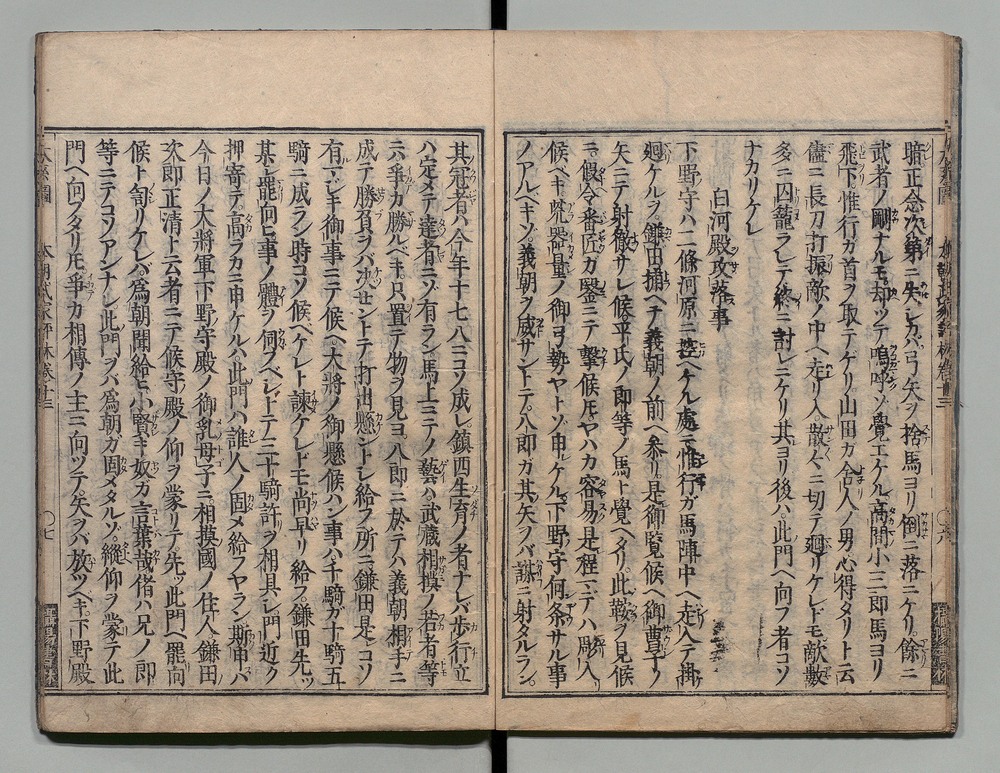 暗正念次第ニ失シカバ弓矢ヲ捨馬ヨリ倒ニ落ニケリ餘ニ
武者ノ剛ナルモ却ツテ嗚呼ゾ覺エケル高間小三郎馬ヨリ
飛下惟行ガ首ヲ取テケリ山田カ舍人ノ男心得タリト云
儘ニ長刀打振敵ノ中ヘ走リ入散々ニ切テ廻リケレドモ敵數
多ニ囚籠ラレテ終ニ討レニケリ其ヨリ後ハ此門ヘ向フ者コソ
ナカリケレ
白河殿攻落事
下野守ハ二條河原ニ控ヘケル處ニ惟行ガ馬陣中ヘ走入テ掛
廻ケルヲ鎌田捕ヘテ義朝ノ前ヘ參リ是御覽候ヘ御曹子ノ
矢ニテ射徹サレ候平氏ノ郎等ノ馬ト覺ヘタリ此鞍ヲ見候
ニ假令番匠ガ鑿ニテ擊候ドモヤハカ容易是程ニハ彫入
候ベキ兇器量ノ御弓勢ヤトゾ申ケル下野守何条サル事
ノアルベキゾ義朝ヲ威サントテ八郎ガ其矢ヲバ謀ニ射タルラン
其冠者ハ今年十七八ニコソ成レ鎮西生育ノ者ナレバ歩行立
ハ定メテ達者ニゾ有ラン馬上ニテノ藝ハ武藏相模ノ若者等
ニハ爭カ勝ルベキ只置テ物ヲ見ヨ八郎ニ於テハ義朝相手ニ
成テ勝負ヲバ決セントテ打出懸ントシ給フ所ニ鎌田是コソ
有マジキ御事ニテ候ヘ大將ノ御懸候ハン事ハ千騎ガ十騎五
騎ニ成ラン時コソ候ベケレト諫ケレドモ尚早リ給フ鎌田先ツ
某シ罷向ヒ事ノ體ヲ伺スベシトテ三十騎許ヲ相具シ門近ク
押寄テ高ラカニ申ケルハ此門ハ誰人ノ固メ給フヤラン斯申バ
今日ノ大將軍下野守殿ノ御乳母子ニ相摸國ノ住人鎌田
次郎正清ト云者ニテ候守殿ノ仰ヲ蒙リテ先ツ此門ヘ罷向
候ト訇リケレバ爲朝聞給ヒ小賢キ奴ガ言葉哉偖ハ兄ノ郎
等ニテコソアンナレ此門ヲバ爲朝ガ固メタルゾ縱仰ヲ蒙テ此
門ヘ向フタリドモ爭カ相傳ノ主ニ向ツテ矢ヲバ放ツベキ下野殿
本朝武家評林卷十三